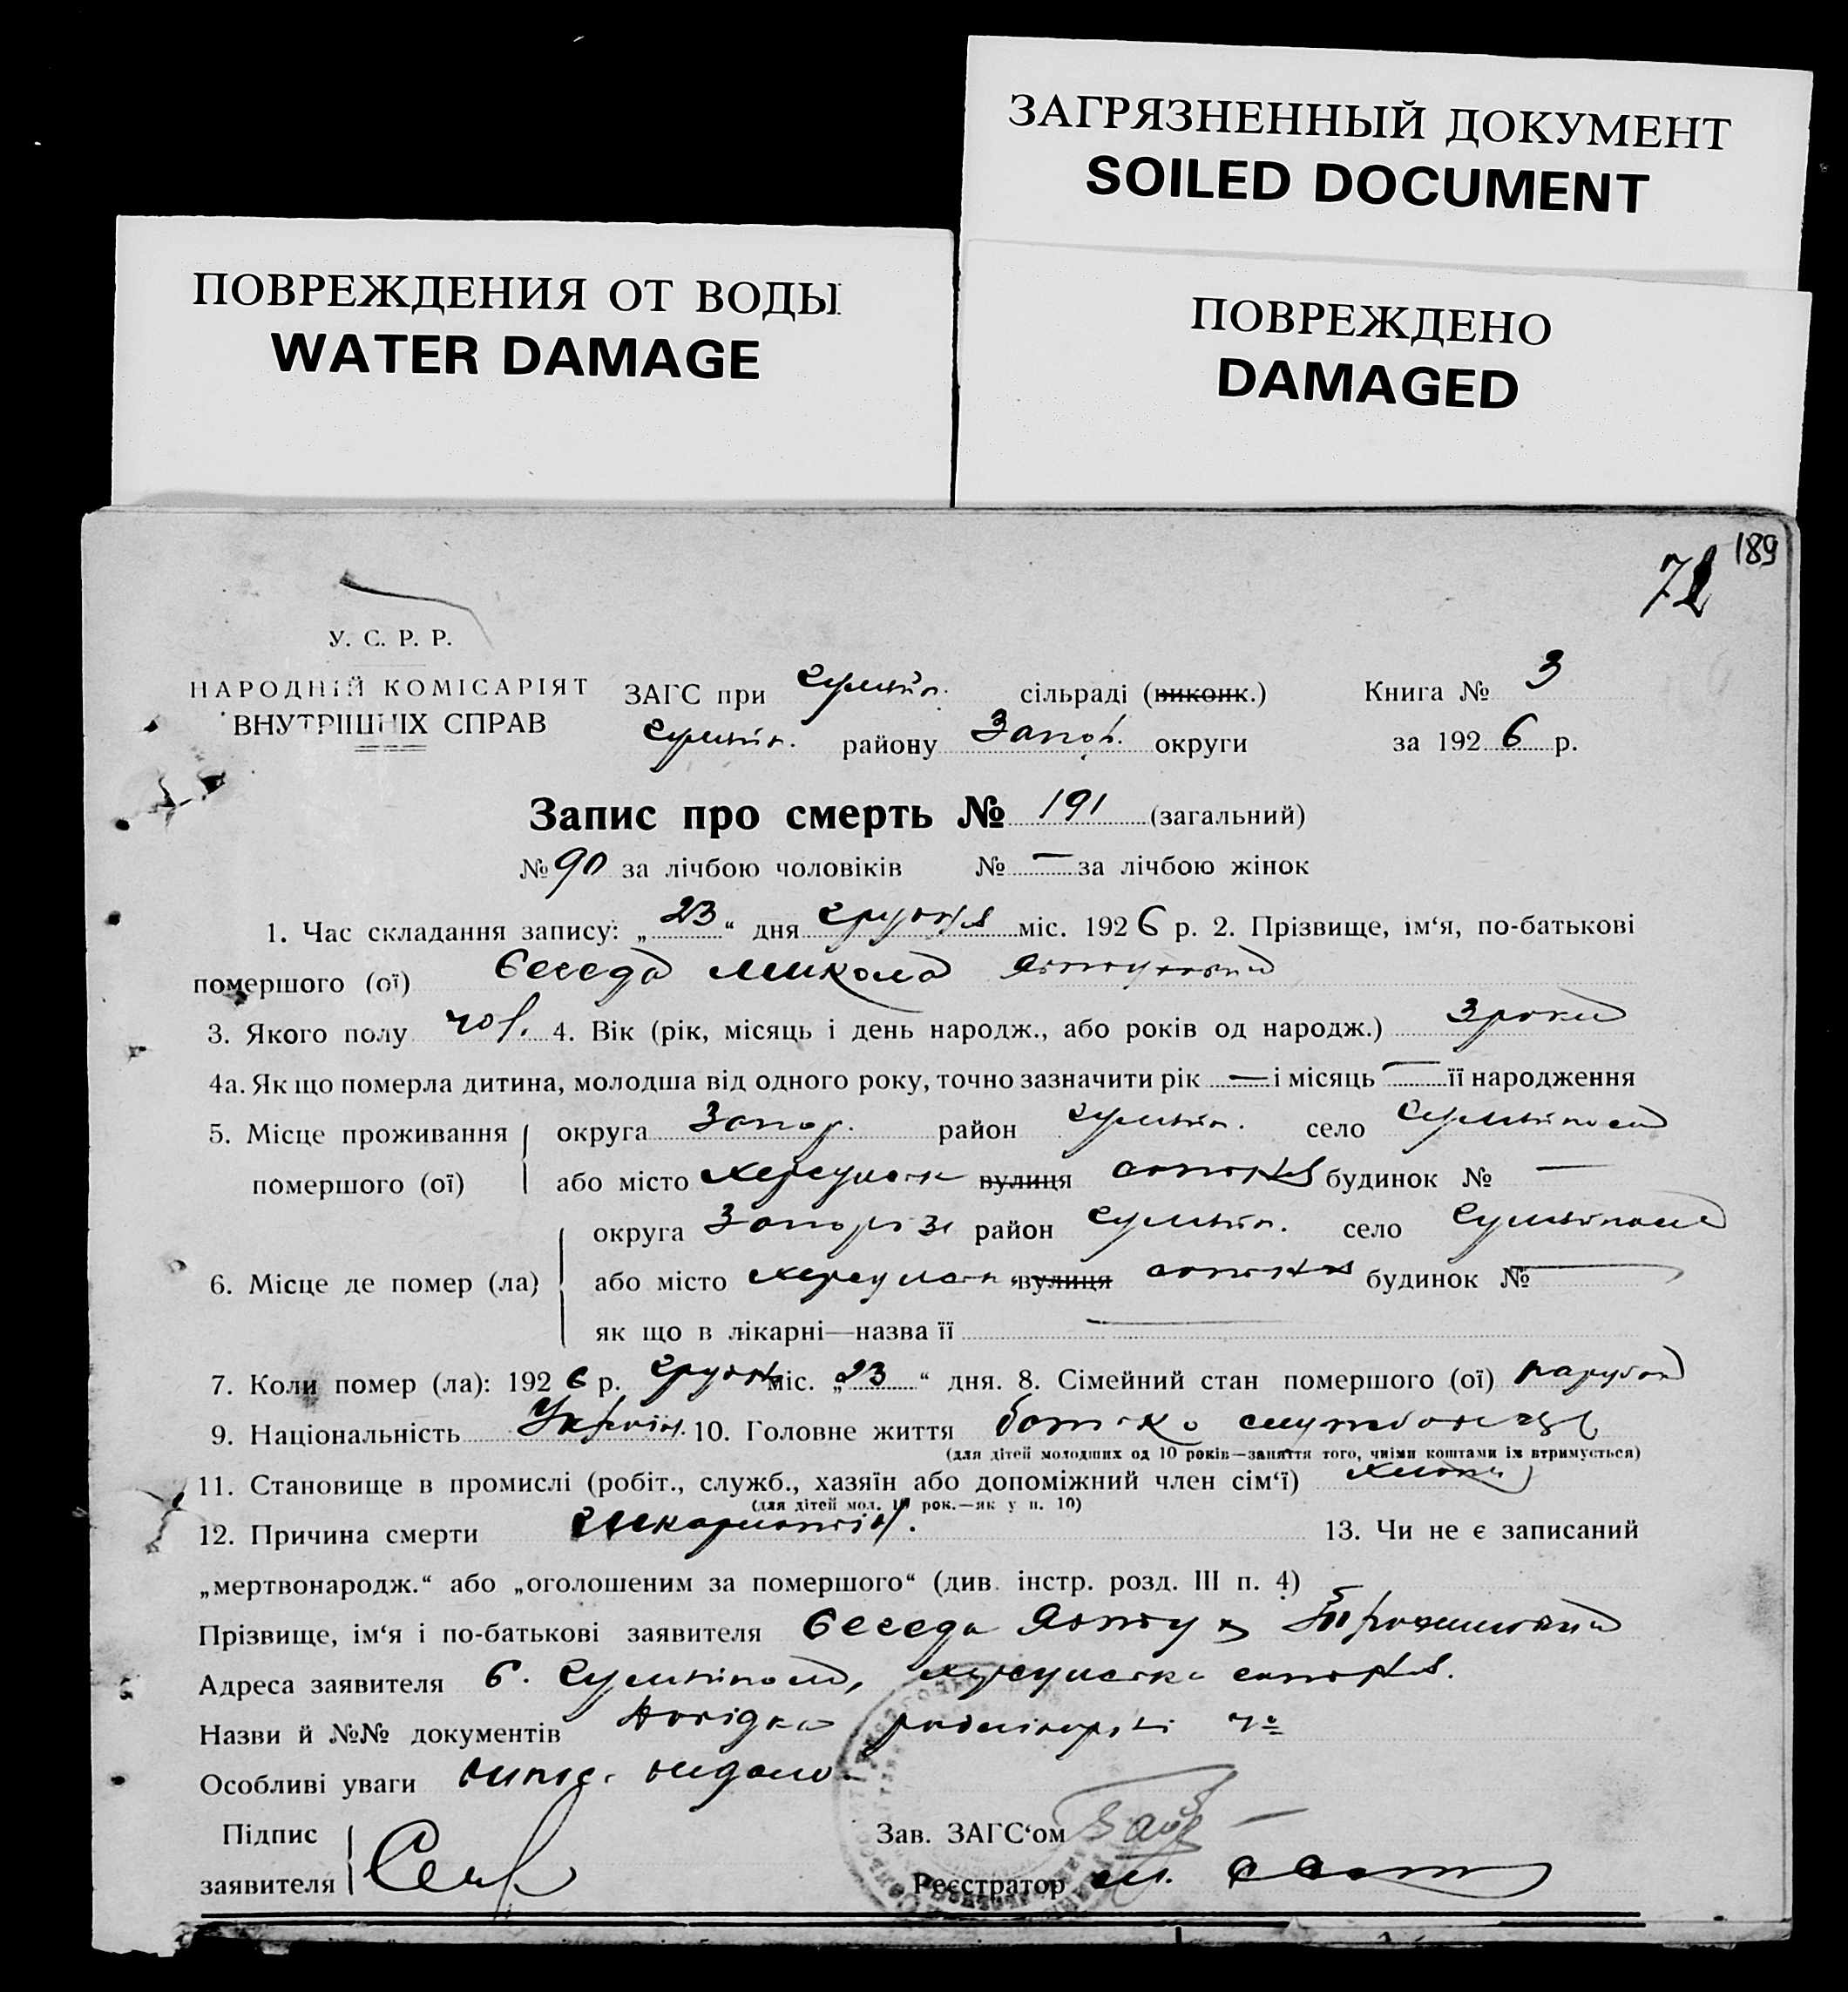 ЗАГРЯЗНЕННЫЙ ДОКУМЕНТ
SOILED DOCUMENT
ПОВРЕЖДЕНИЯ ОТ ВОДЫ
WATER DAMAGE
ПОВРЕЖДЕНО
DAMAGED
189
72
У. С. Р. Р.
НАРОДНІЙ КОМІСАРІЯТ
ВНУТРІШНІХ СПРАВ
ЗАГС при Гуляйп. сільраді (виконк.) Книга № 3
Гуляйп. району Запор. округи за 1926 р.
Запис про смерть № 191 (загальний)
№ 90 за лічбою чоловіків № — за лічбою жінок
1. Час складання запису: „23“ дня грудня міс. 1926 р. 2. Прізвище, ім‘я, по-батькові
помершого (ої) Беседа Микола
3. Якого полу чол. 4. Вік (рік, місяць і день народж., або років од народж.) 3 роки
4а. Як що померла дитина, молодша від одного року, точно зазначити рік — і місяць — її народження
5. Місце проживання округа Запор. район Гуляйп. село Гуляйполе
помершого (ої) або місто вулиця сотня будинок № —
округа Запоріз район Гуляйп. село Гуляйполе
6. Місце де помер (ла) або місто вулиця сотня будинок № —
як що в лікарні—назва її —
7. Коли помер (ла): 1926 р. грудн міс. „23“ дня. 8. Сімейний стан помершого (ої)
9. Національність Україн. 10. Головне життя батько службовець
(для дітей молодших од 10 років—заняття того, чиїми коштами їх втримується)
11. Становище в промислі (робіт., служб., хазяїн або допоміжний член сім‘ї)
(для дітей мол. 10 рок.—як у п. 10)
12. Причина смерти Скарлатін. 13. Чи не є записаний
„мертвонародж.“ або „оголошеним за помершого“ (див. інстр. розд. III п. 4)
Прізвище, ім‘я і по-батькові заявителя Беседа
Адреса заявителя с. Гуляйполе, сотня.
Назви й №№ документів Довідка
Особливі уваги випис. видано.
Підпис Зав. ЗАГС‘ом
заявителя Реєстратор